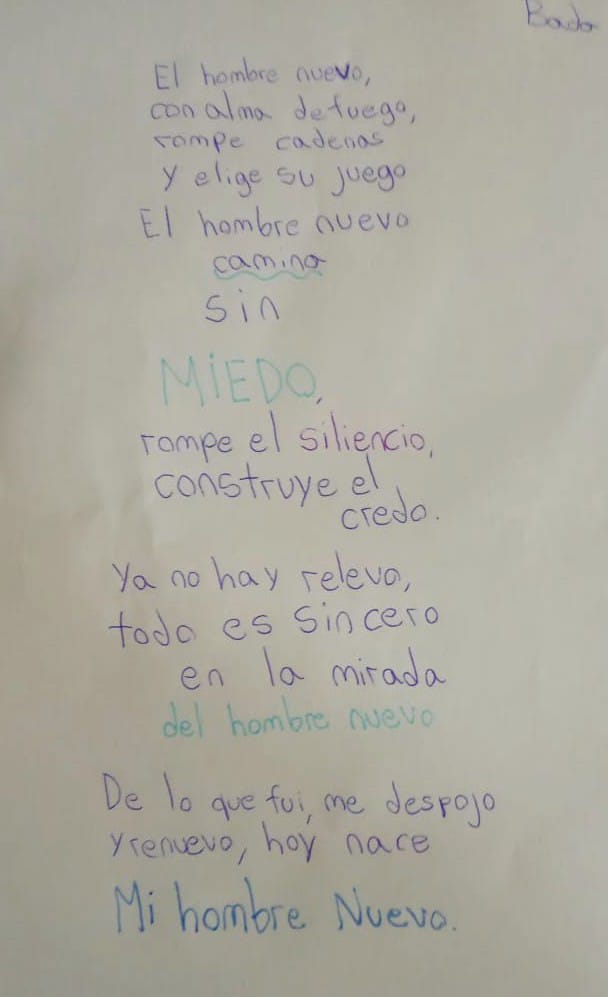 Bado
El hombre nuevo,
con alma de fuego,
rompe cadenas
y elige su juego
El hombre nuevo
camina
sin
MiEDO,
rompe el siliencio,
construye el
credo.
Ya no hay relevo,
todo es sincero
en la mirada
del hombre nuevo
De lo que fui, me despojo
y renuevo, hoy nace
Mi hombre Nuevo.